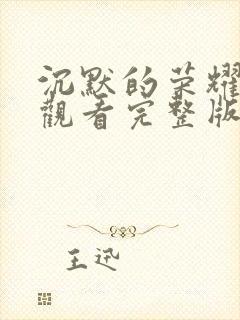 沉默的荣耀
觀看完整版
王迅